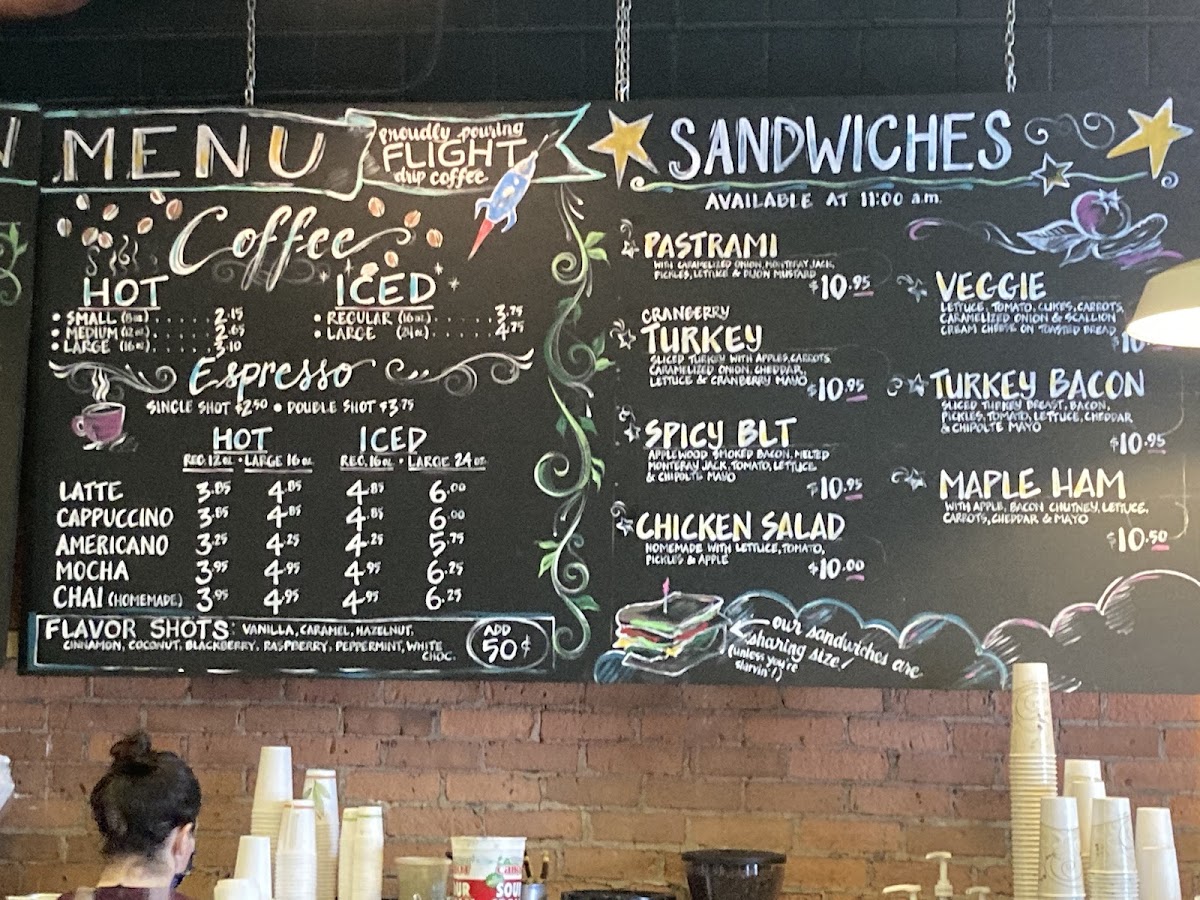 MENU
Proudly pouring
FLIGHT
drip coffee
Coffee
HOT
• SMALL (8oz) . . . . . . 2.15
• MEDIUM (12oz) . . . . . 2.65
• LARGE (16oz) . . . . . 3.10
ICED
• REGULAR (16oz) . . . . . . 3.75
• LARGE (24oz) . . . . . . 4.75
Espresso
SINGLE SHOT $2.50 • DOUBLE SHOT $3.75
HOT ICED
REG. 12oz • LARGE 16oz REG. 16oz • LARGE 24oz
LATTE 3.85 4.85 4.85 6.00
CAPPUCCINO 3.85 4.85 4.85 6.00
AMERICANO 3.25 4.25 4.25 5.75
MOCHA 3.95 4.95 4.95 6.25
CHAI (HOMEMADE) 3.95 4.95 4.95 6.25
FLAVOR SHOTS: VANILLA, CARAMEL, HAZELNUT,
CINNAMON, COCONUT, BLACKBERRY, RASPBERRY, PEPPERMINT, WHITE
CHOC.
ADD
50¢
SANDWICHES
AVAILABLE AT 11:00 a.m.
PASTRAMI
WITH CARAMELIZED ONION, MONTERAY JACK,
PICKLES, LETTUCE & DIJON MUSTARD
$10.95
CRANBERRY
TURKEY
SLICED TURKEY WITH APPLES, CARROTS,
CARAMELIZED ONION, CHEDDAR,
LETTUCE & CRANBERRY MAYO
$10.95
SPICY BLT
APPLEWOOD SMOKED BACON, MELTED
MONTERAY JACK, TOMATO, LETTUCE
& CHIPOLTE MAYO
$10.95
CHICKEN SALAD
HOMEMADE WITH LETTUCE, TOMATO,
PICKLES & APPLE
$10.00
VEGGIE
LETTUCE, TOMATO, CUKES, CARROTS,
CARAMELIZED ONION & SCALLION
CREAM CHEESE ON TOASTED BREAD
$10
TURKEY BACON
SLICED TURKEY BREAST, BACON,
PICKLES, TOMATO, LETTUCE, CHEDDAR
& CHIPOLTE MAYO
$10.95
MAPLE HAM
WITH APPLE, BACON CHUTNEY, LETTUCE,
CARROTS, CHEDDAR & MAYO
$10.50
our sandwiches are
sharing size!
(unless you're
starvin'!)
SOUR
SOU